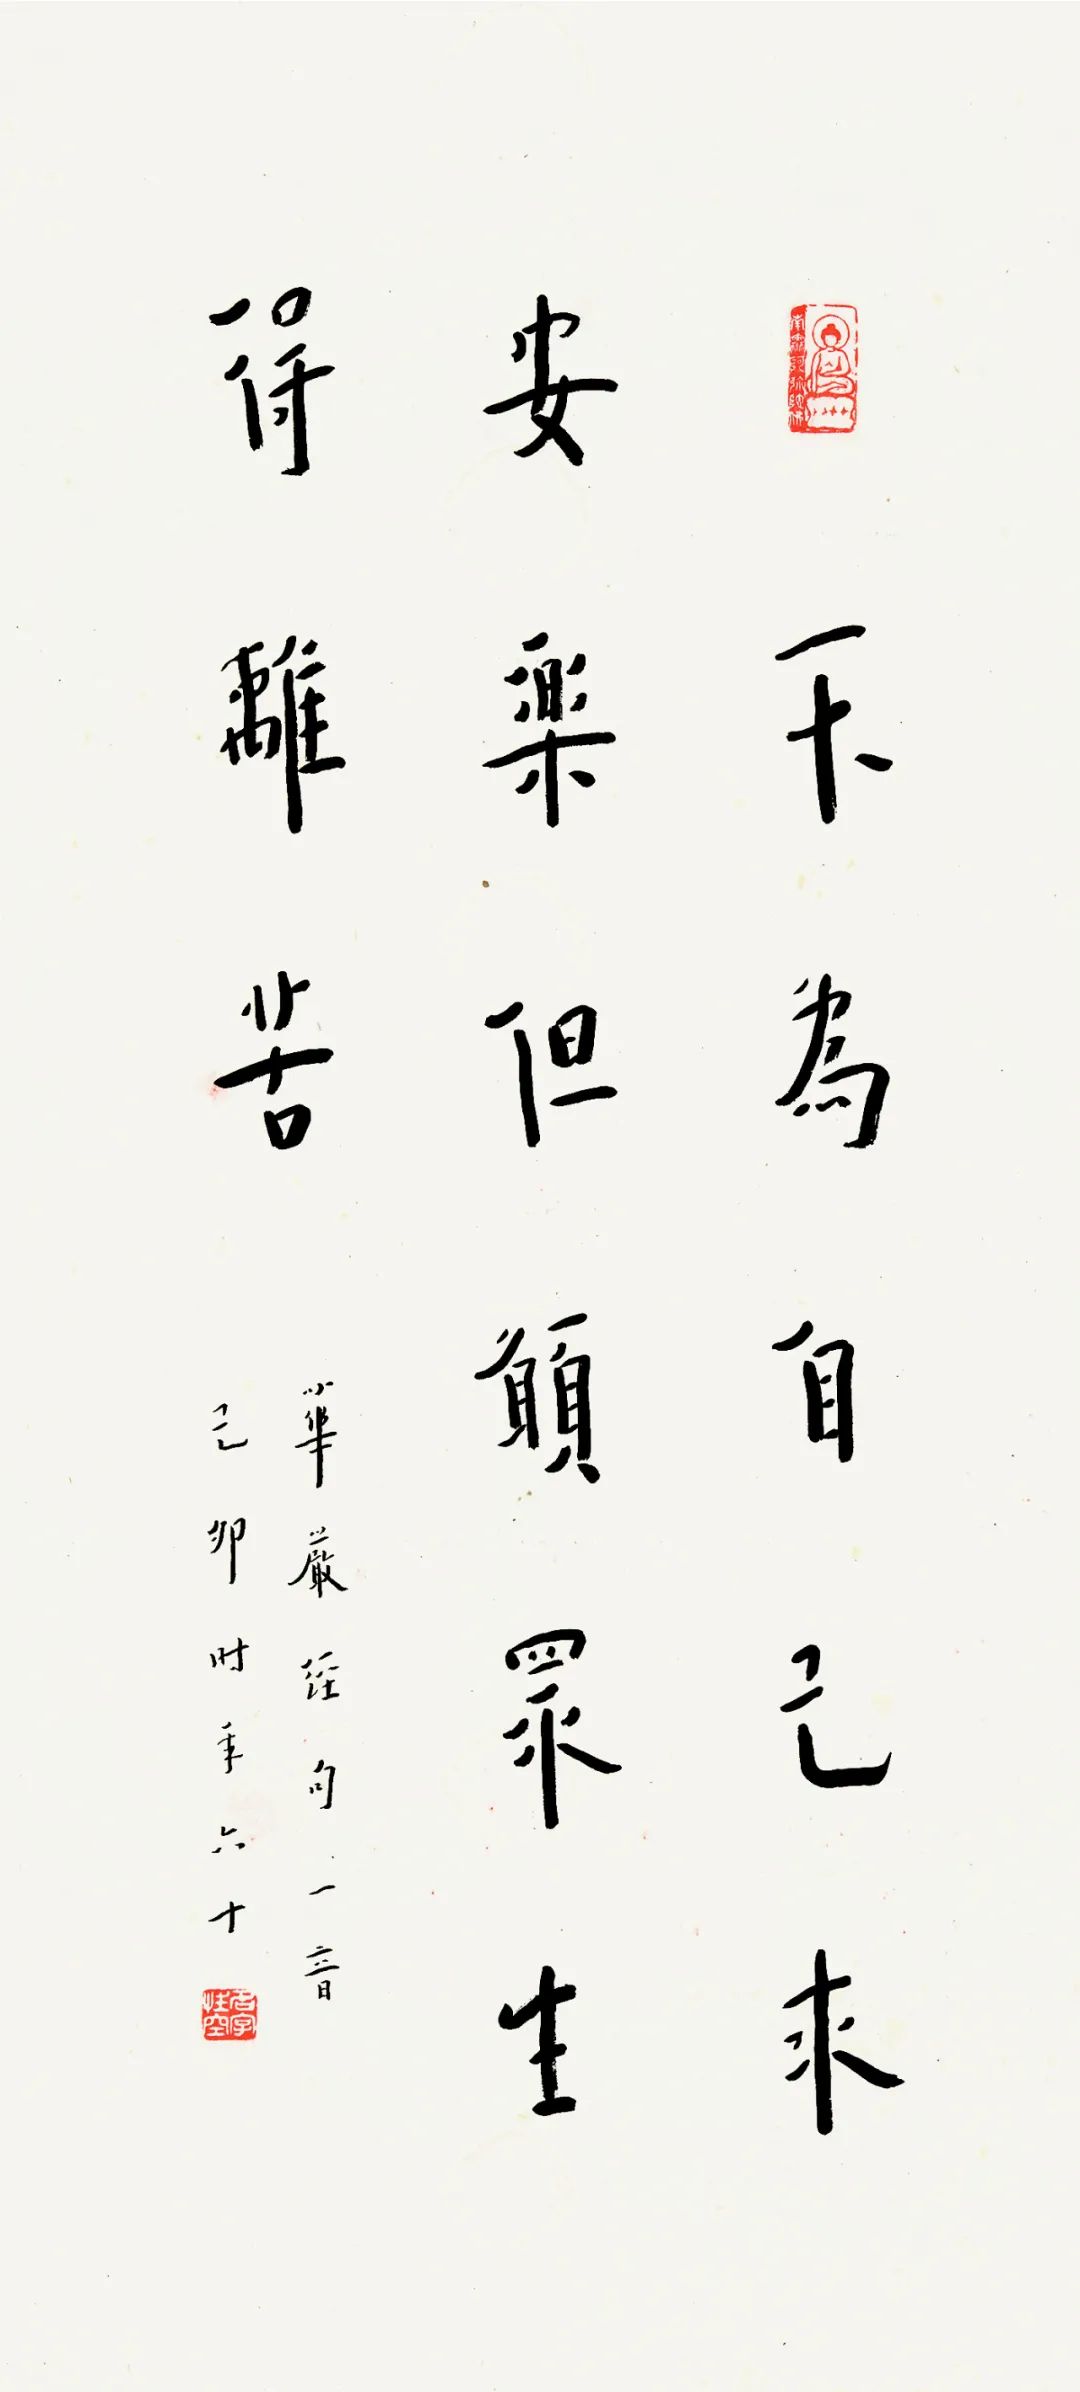 不為自己求
安樂但願眾生
得離苦
華嚴經句一音
己卯时年六十